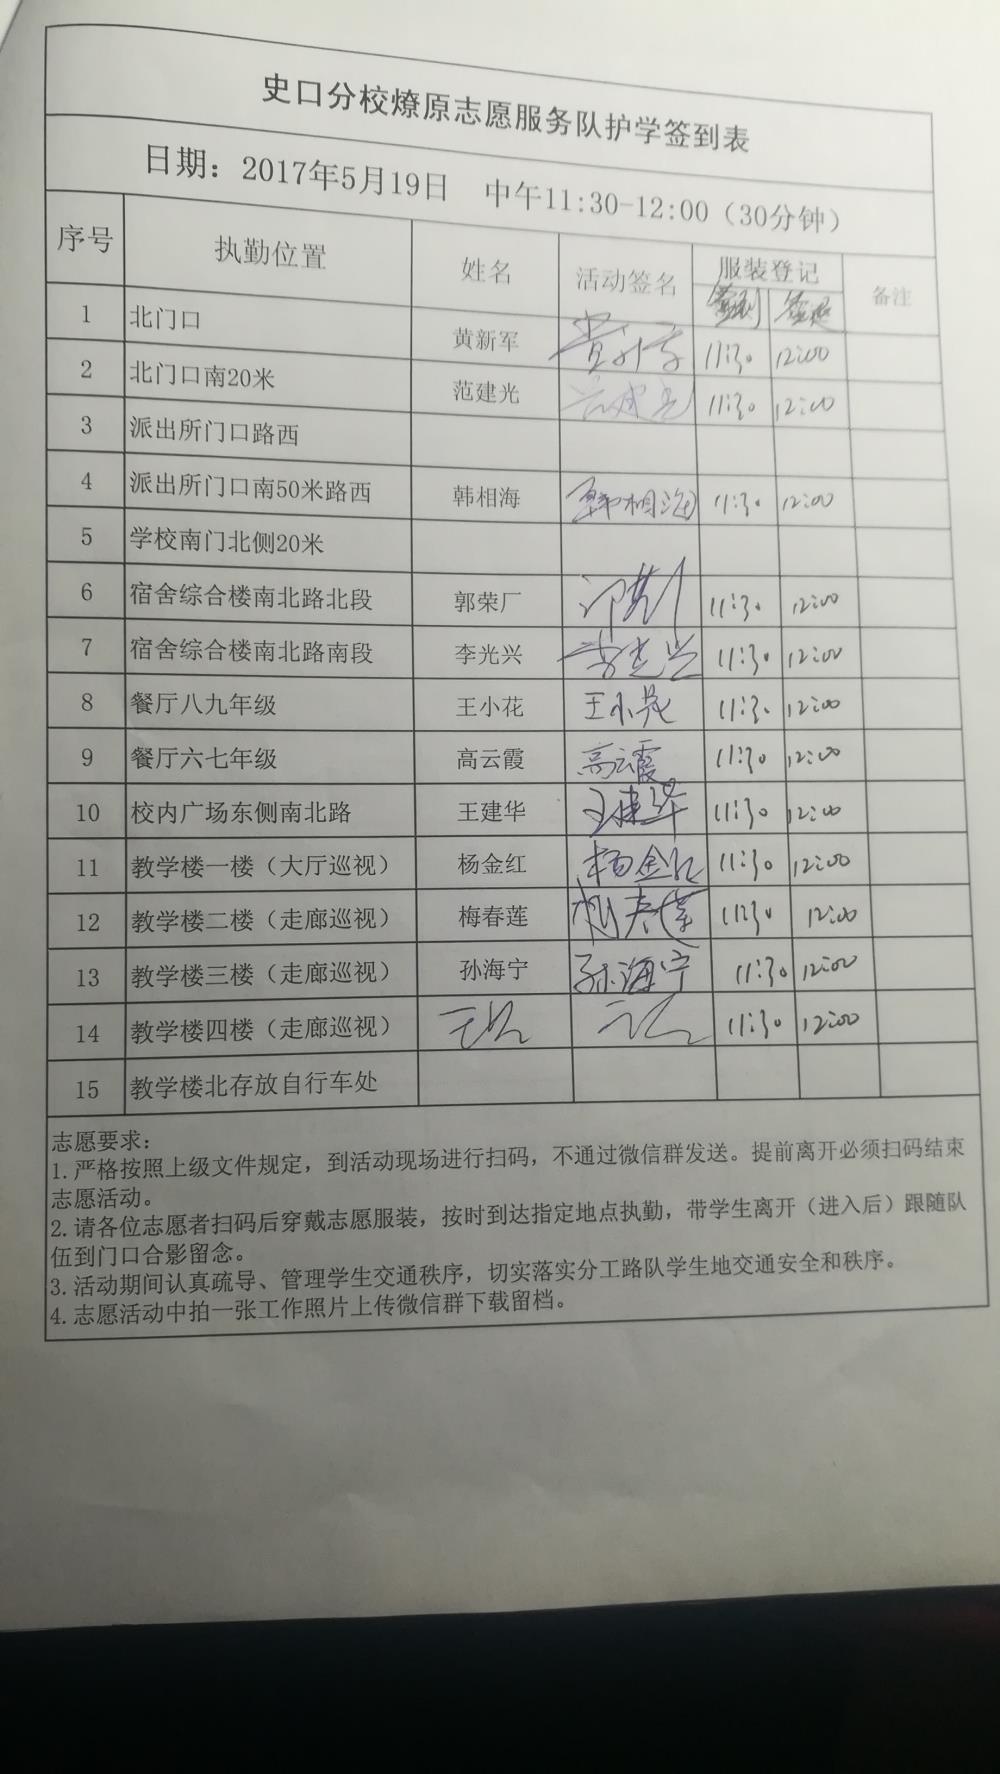 史口分校燎原志愿服务队护学签到表
日期：2017年5月19日 中午11:30-12:00（30分钟）
序号 执勤位置 姓名 活动签名 服装登记 备注
签到 签退
1 北门口 黄新军 黄新军 11:30 12:00
2 北门口南20米 范建光 范建光 11:30 12:00
3 派出所门口路西
4 派出所门口南50米路西 韩相海 韩相海 11:30 12:00
5 学校南门北侧20米
6 宿舍综合楼南北路北段 郭荣厂 11:30 12:00
7 宿舍综合楼南北路南段 李光兴 李光兴 11:30 12:00
8 餐厅八九年级 王小花 王小花 11:30 12:00
9 餐厅六七年级 高云霞 高云霞 11:30 12:00
10 校内广场东侧南北路 王建华 王建华 11:30 12:00
11 教学楼一楼（大厅巡视） 杨金红 杨金红 11:30 12:00
12 教学楼二楼（走廊巡视） 梅春莲 梅春莲 11:30 12:00
13 教学楼三楼（走廊巡视） 孙海宁 孙海宁 11:30 12:00
14 教学楼四楼（走廊巡视） 11:30 12:00
15 教学楼北存放自行车处
志愿要求：
1.严格按照上级文件规定，到活动现场进行扫码，不通过微信群发送。提前离开必须扫码结束
志愿活动。
2.请各位志愿者扫码后穿戴志愿服装，按时到达指定地点执勤，带学生离开（进入后）跟随队
伍到门口合影留念。
3.活动期间认真疏导、管理学生交通秩序，切实落实分工路队学生地交通安全和秩序。
4.志愿活动中拍一张工作照片上传微信群下载留档。